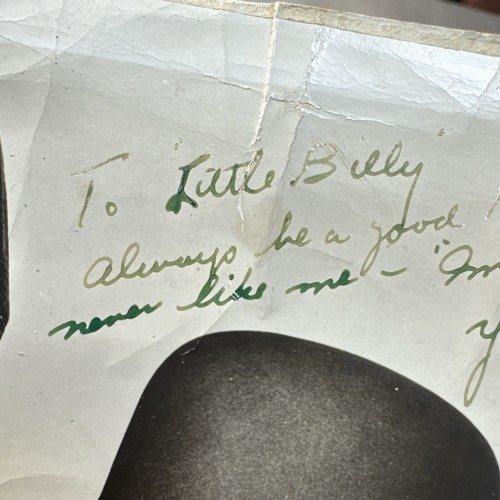 To Little Billy
Always be a good
never like me - "Im
y